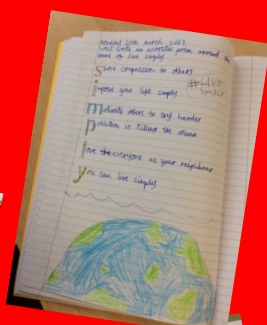 Monday 20th March 2023
Walt write an acrostic poem around the
theme of live simply
Show compassion to others
#Live
Simply
impose your life simply
motivate others to try harder
pollution is killing the ocean
love everyone as your neighbour
you can live simply